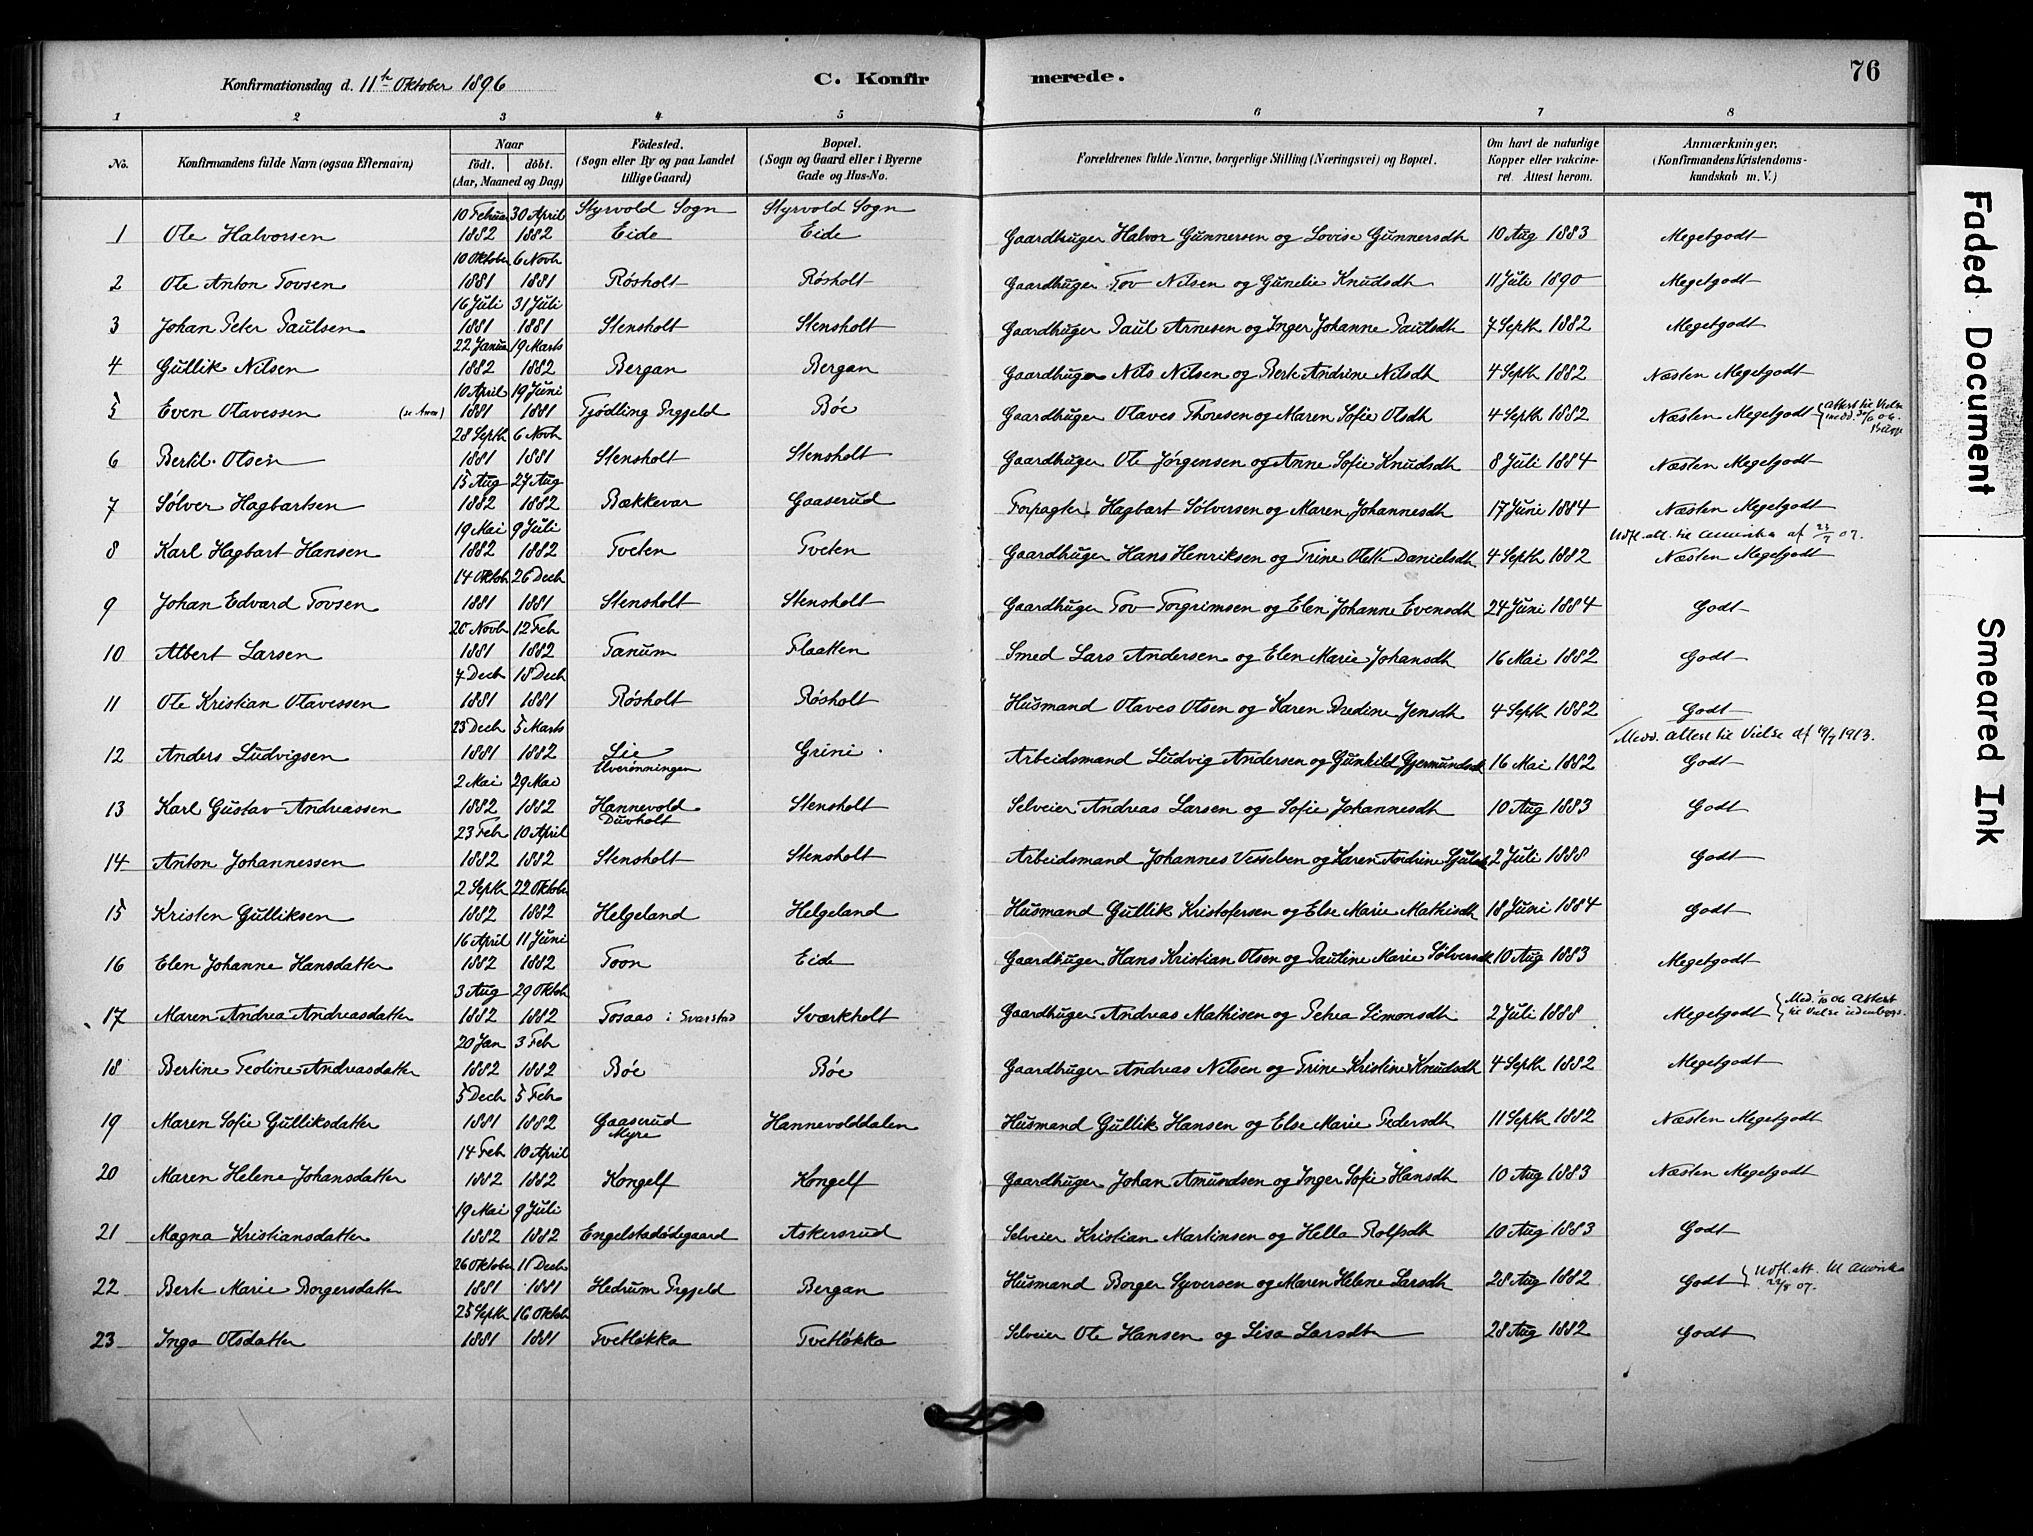 Konfirmationsdag d. 11th Oktober 1896
C. Konfirmerede.
76
1 2 3 4 5 6 7 8
No.
Konfirmandens fulde Navn (ogsaa Efternavn)
Naar
födt. döbt.
(Aar, Maaned og Dag)
Födested.
(Sogn eller By og paa Landet
tillige Gaard)
Bopæl.
(Sogn og Gaard eller i Byerne
Gade og Hus-No.
Forældrenes fulde Navne, borgerlige Stilling (Næringsvei) og Bopæl.
Om havt de naturlige
Kopper eller vakcine-
ret. Attest herom.
Anmærkninger.
(Konfirmandens Kristendoms-
kundskab m. V.)
10 Februar 30 April Styrvold Sogn Styrvold Sogn
1 Ole Halvorsen 1882 1882 Eide Eide Gaardbuger Halvor Gunnersen og Lovise Gunnersdtr 10 Aug 1883 Megetgodt
10 Oktober 6 Novbr
2 Ole Anton Tovsen 1881 1881 Røsholt Røsholt Gaardbuger Tov Nilsen og Gunelie Knudsdtr 11 Juli 1890 Megetgodt
16 Juli 31 Juli
3 Johan Peter Paulsen 1881 1881 Stensholt Stensholt Gaardbuger Paul Arnesen og Inger Johanne Paulsdtr 7 Septbr 1882 Megetgodt
22 Januar 19 Marts
4 Gullik Nilsen 1882 1882 Bergan Bergan Gaardbuger Nils Nilsen og Berte Andrine Nilsdtr 4 Septbr 1882 Næsten Megetgodt
10 April 19 Juni
5 Even Olavessen 1881 1881 Tjødling Prgjeld Bøe Gaardbuger Olaves Thoresen og Maren Sofie Olsdtr 4 Septbr 1882 Næsten Megetgodt { Attest til Vielse
28 Septbr 6 Novbr
6 Bertil Olsen 1881 1881 Stensholt Stensholt Gaardbuger Ole Jørgensen og Anne Sofie Knudsdtr 8 Juli 1884 Næsten Megetgodt
15 Aug 27 Aug
7 Sølver Hagbartsen 1882 1882 Bækkevar Gaaserud Forpagter Hagbart Sølversen og Maren Johannesdtr 17 Juni 1884 Næsten Megetgodt
19 Mai 9 Juli Udfl. att. til Amerika af 23/7 07.
8 Karl Hagbart Hansen 1882 1882 Tveten Tveten Gaardbuger Hans Henriksen og Trine Olette Danielsdtr 4 Septbr 1882 Næsten Megetgodt
14 Oktob 26 Decbr
9 Johan Edvard Tovsen 1881 1881 Stensholt Stensholt Gaardbuger Tov Torgrimsen og Elen Johanne Evensdtr 24 Juni 1884 Godt
26 Novbr 12 Feb
10 Albert Larsen 1881 1882 Tanum Flaatten Smed Lars Andersen og Elen Marie Johansdtr 16 Mai 1882 Godt
7 Decbr 18 Decbr
11 Ole Kristian Olavessen 1881 1881 Røsholt Røsholt Husmand Olaves Olsen og Karen Bredine Jensdtr 4 Septbr 1882 Godt
23 Decbr 5 Marts Medd. attest til Vielse af 19/7 1913.
12 Anders Ludvigsen 1881 1882 Lie Grini Arbeidsmand Ludvig Andersen og Gunhild Gjermundsdtr 16 Mai 1882 Godt
Elverønningen
2 Mai 29 Mai
13 Karl Gustav Andreassen 1882 1882 Hannevold Stensholt Selveier Andreas Larsen og Sofie Johannesdtr 10 Aug 1883 Godt
Duvholt
23 Feb 10 April
14 Anton Johannessen 1882 1882 Stensholt Stensholt Arbeidsmand Johannes Vesselsen og Karen Andrine 2 Juli 1888 Godt
2 Septbr 22 Oktober
15 Kristen Gulliksen 1882 1882 Helgeland Helgeland Husmand Gullik Kristofersen og Else Marie Mathisdtr 18 Juni 1884 Godt
16 April 11 Juni
16 Elen Johanne Hansdatter 1882 1882 Toon Eide Gaardbuger Hans Kristian Olsen og Pauline Marie Sølversdtr 10 Aug 1883 Megetgodt
3 Aug 29 Oktob
17 Maren Andrea Andreasdatter 1882 1882 Fosaas i Svarstad Sværkholt Gaardbuger Andreas Mathisen og Petrea Simonsdtr 2 Juli 1888 Megetgodt { Med. 1/10 06 Attest
til Vielse udenbygs.
20 Jan 3 Feb
18 Bertine Teoline Andreasdatter 1882 1882 Bøe Bøe Gaardbuger Andreas Nilsen og Trine Kristine Knudsdtr 4 Septbr 1882 Megetgodt
5 Decbr 5 Feb
19 Maren Sofie Gulliksdatter 1881 1882 Gaaserud Hannevolddalen Husmand Gullik Hansen og Else Marie Pedersdtr 11 Septbr 1882 Næsten Megetgodt
Myre
14 Feb 10 April
20 Maren Helene Johansdatter 1882 1882 Kongelf Kongelf Gaardbuger Johan Amundsen og Inger Sofie Hansdtr 10 Aug 1883 Næsten Megetgodt
19 Mai 9 Juli
21 Magna Kristiansdatter 1882 1882 Engelstadødegaard Askersrud Selveier Kristian Martinsen og Hella Rolfsdtr 10 Aug 1883 Godt
26 Oktober 11 Decbr
22 Berte Marie Borgersdatter 1881 1881 Hedrum Prgjeld Bergan Husmand Borger Syversen og Maren Helene Larsdtr 28 Aug 1882 Godt } Udfl. att. til Amerika
22/8 07.
25 Septbr 16 Oktobr
23 Inga Olsdatter 1881 1881 Tvetløkka Tvetløkka Selveier Ole Hansen og Lisa Larsdtr 28 Aug 1882 Godt
Faded Document
Smeared Ink